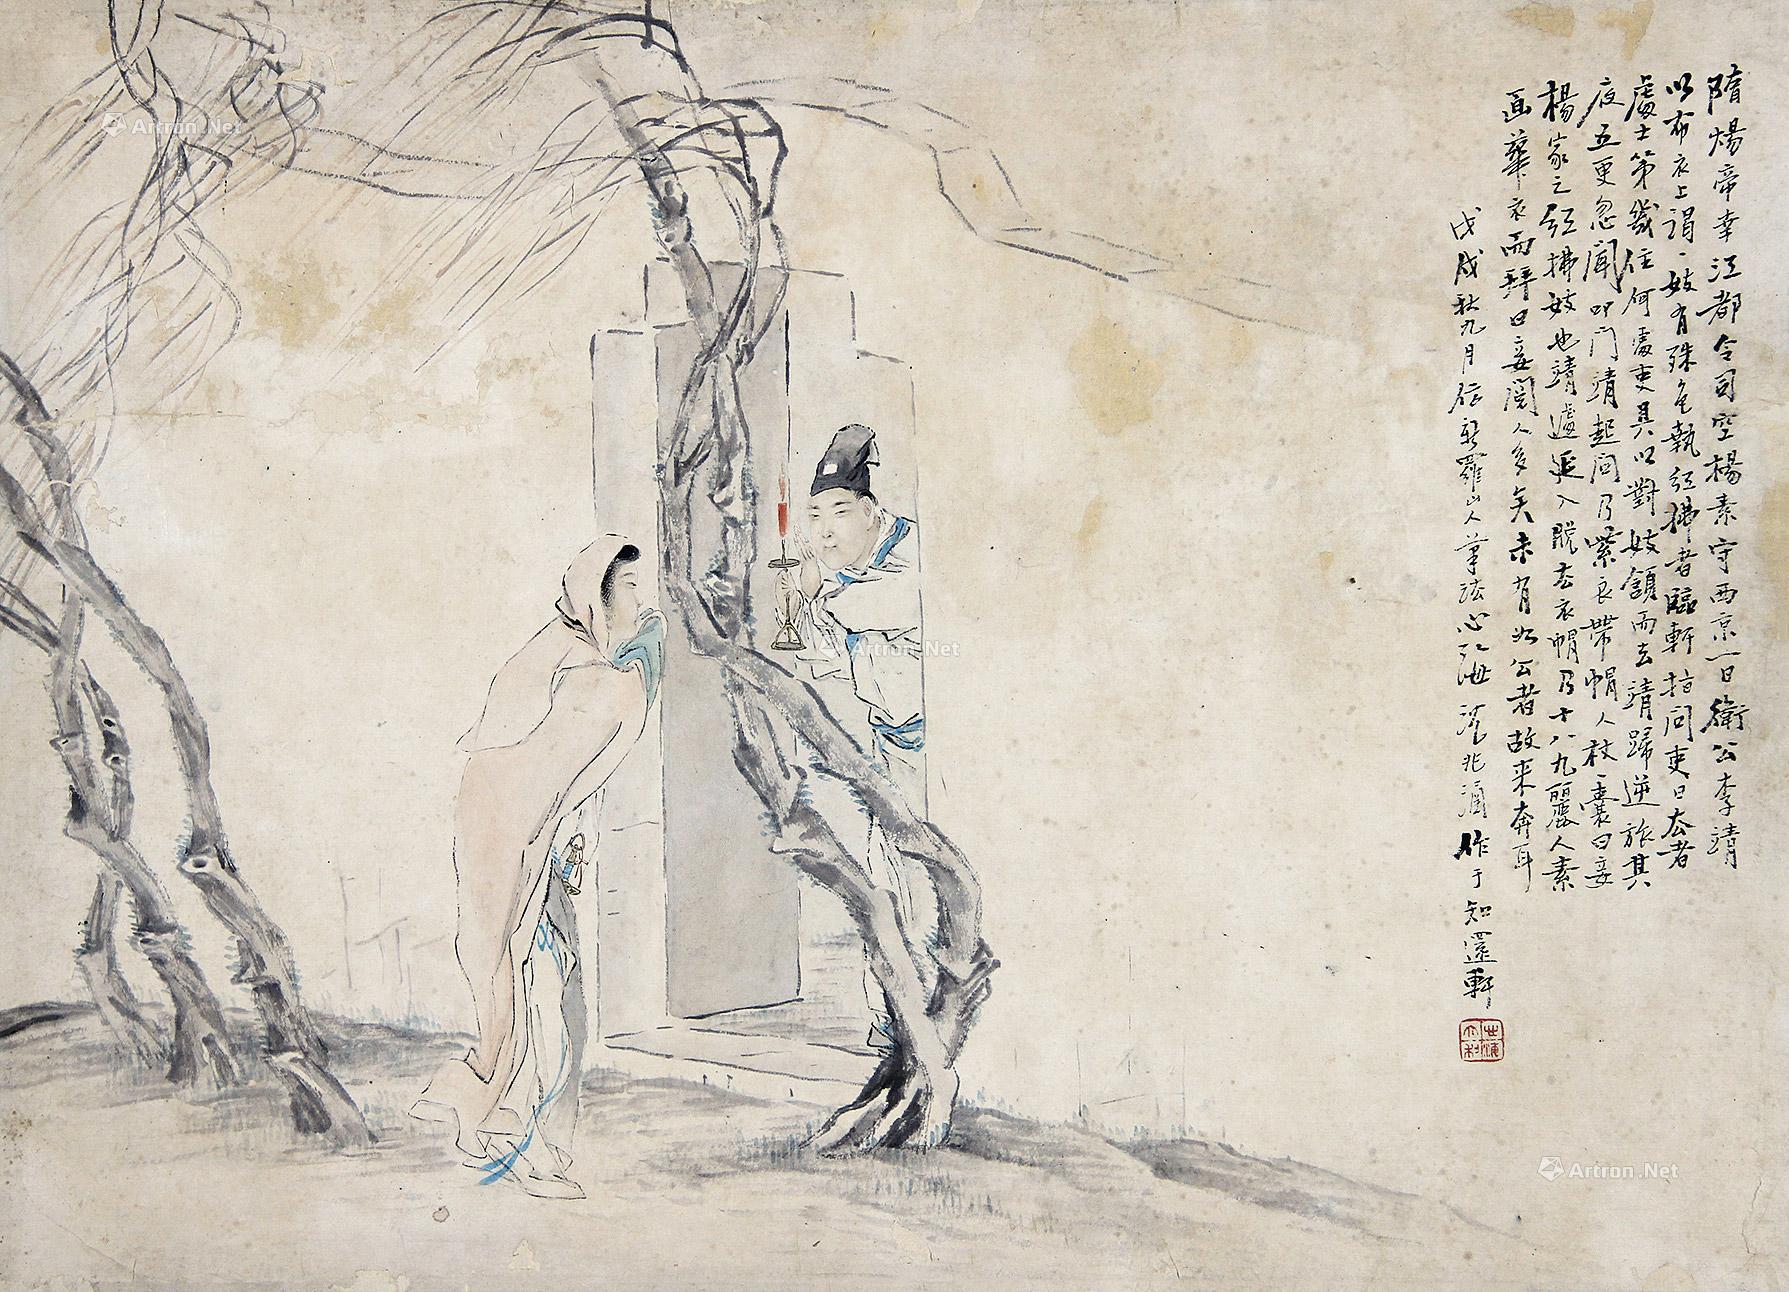 隋煬帝幸江都令司空楊素守西京一日衛公李靖
以布衣上謁一妓有殊色執紅拂者臨軒指問吏曰去者
處士第幾住何處吏具以對妓頷而去靖歸逆旅其
夜五更忽聞叩門靖起問乃紫衣帶帽人杖一囊曰妾
楊家之紅拂妓也靖遽延入脫去衣帽乃十八九麗人素
面華衣而拜曰妾閱人多矣未有如公者故來奔耳
戊戌秋九月仿新羅山人筆法心海沈兆涵作于知還軒
Artron.Net
Artron.Net
Artron.Net